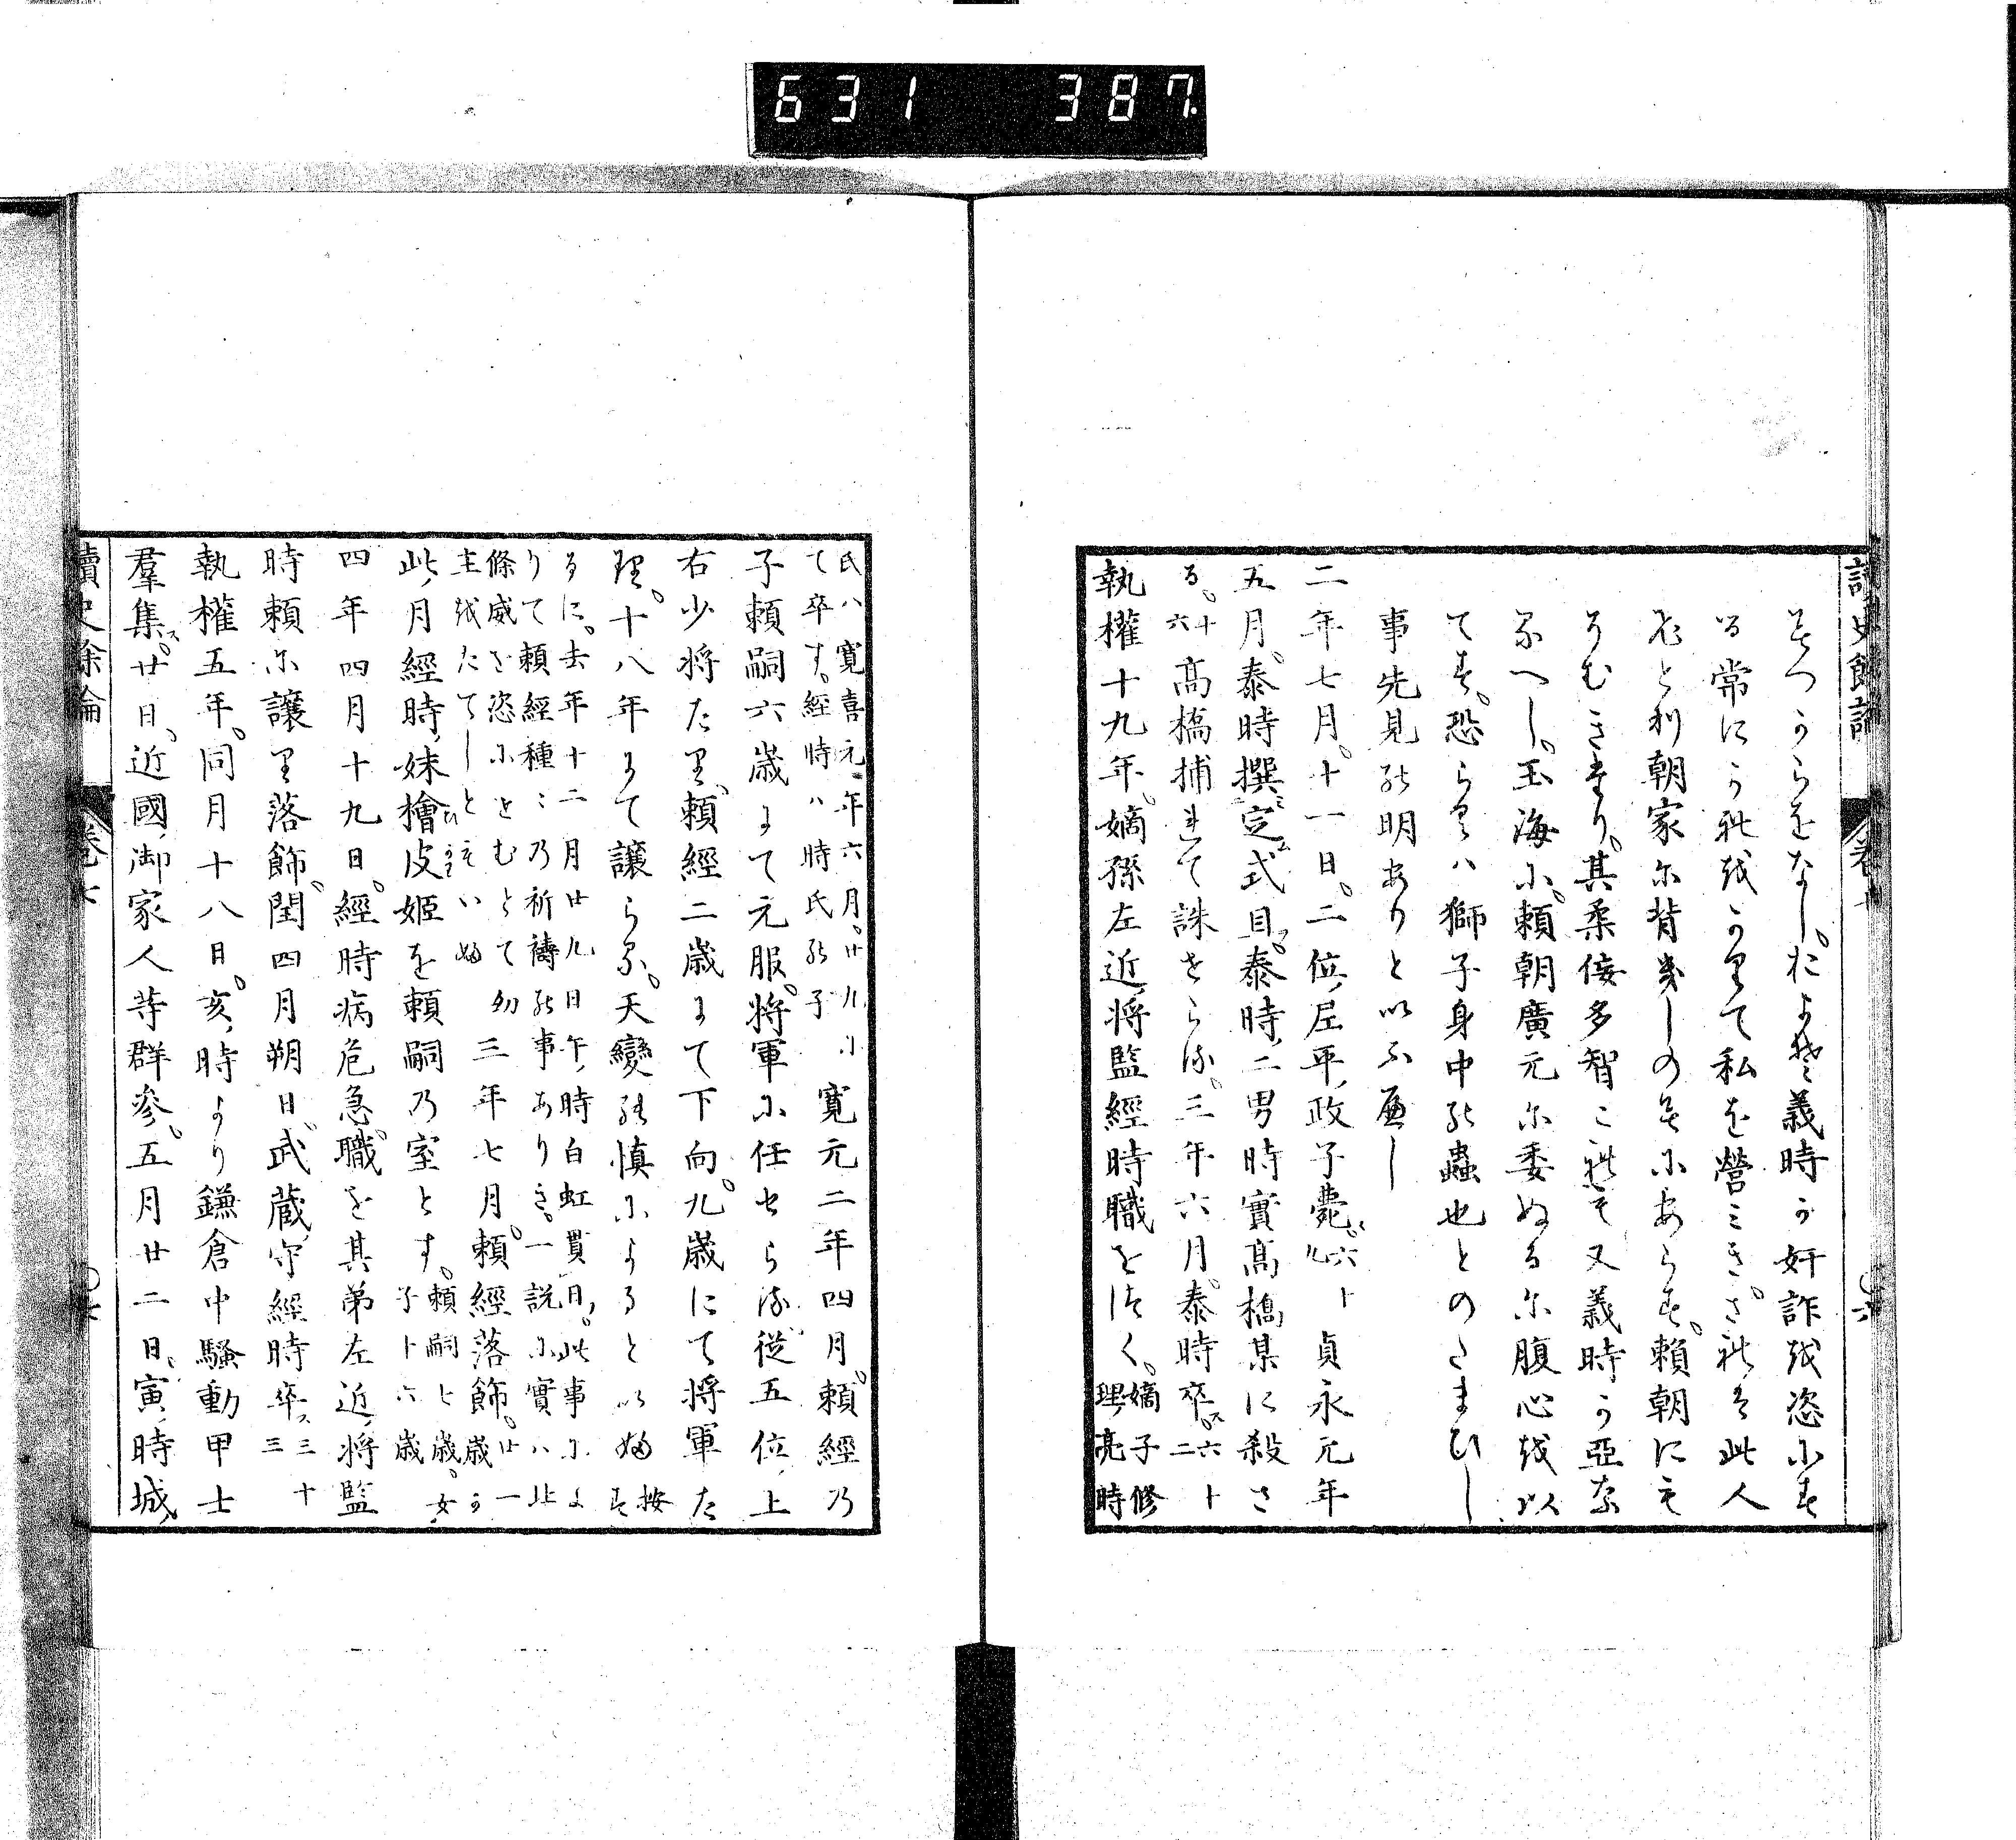 631 387
讀史餘論 卷七 〇六
そつからをなし。およそ義時か奸詐を恣にす
る常にこれをかりて私を營ミき。されは此人
たゝ朝家に背きしのみにあらす。頼朝にも
そむきき。其柔佞多智これも又義時か亞な
るへし。玉海に頼朝廣元に委ぬるに腹心を以
てす。恐らくハ獅子身中の蟲也とのたまひし
事先見の明ありと以ふへし
二年七月。十一日。二位尼平政子薨。六十九 貞永元年
五月。泰時撰定式目。泰時二男時實高橋某に殺さ
る。十六 高橋捕れて誅せらる。三年六月。泰時卒。六十二
執權十九年。嫡孫左近將監經時職をつく。嫡子修理亮時
氏ハ寛喜元年六月。廿九に
て卒す。經時ハ時氏の子 寛元二年四月。頼經乃
子頼嗣六歳にて元服。將軍に任せらる。從五位上
右少将たり。頼經二歳にて下向。九歳にて將軍た
り。十八年にて讓らる。天變の慎によるといふ 按す
るに。去年十二月廿九日午時白虹貫日。此事によ
りて頼經種〻乃祈禱の事ありき。一説に實ハ北
條威を恣にせむとて幼
主をたてしともいふ 三年七月。頼經落飾。廿一歳か
此月經時妹檜皮姫を頼嗣乃室とす。頼嗣七歳。女子十六歳
四年四月十九日。經時病危急。職を其弟左近將監
時頼に讓り落飾。閏四月朔日。武藏守經時卒ス 三十三
執權五年。同月十八日。亥時より鎌倉中騒動甲士
羣集ス。廿日。近國御家人等群參。五月廿二日。寅時城
讀史餘論 卷七 〇七